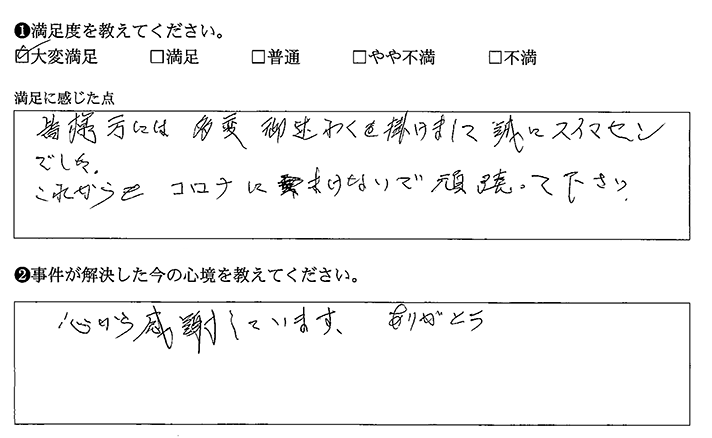 ❶満足度を教えてください。
☑大変満足 □満足 □普通 □やや不満 □不満
満足に感じた点
皆様方には 多変 御迷わくを掛けまして 誠にスイマセン
でした。
これからも コロナに まけないで 頑張って下さい
❷事件が解決した今の心境を教えてください。
心から感謝しています、 ありがとう